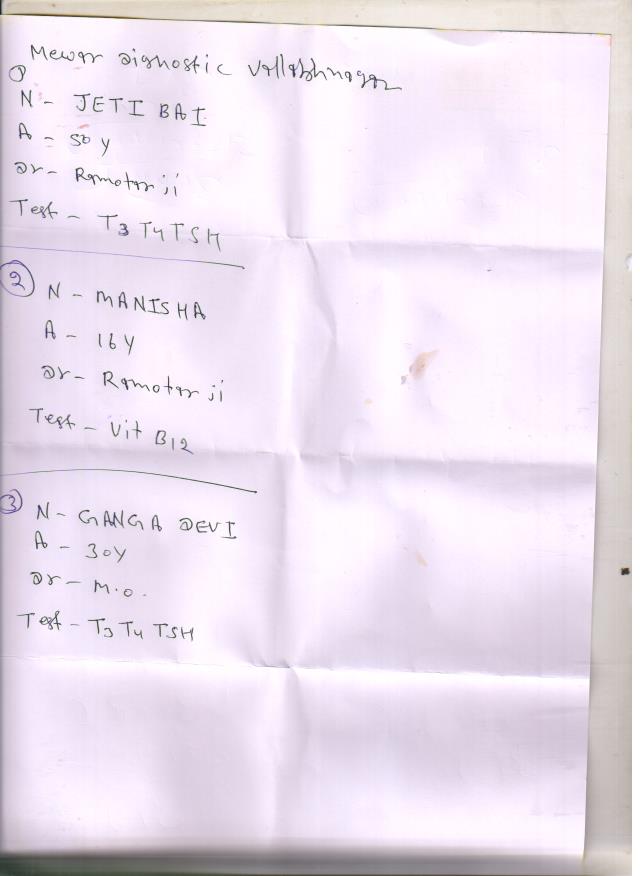 Mewar Dignostic Vallabhnagar
①
N - JETI BAI
A - 50 Y
Dr - Ramotar ji
Test - T3 T4 TSH
② N - MANISHA
A - 16 Y
Dr - Ramotar ji
Test - Vit B12
③ N - GANGA DEVI
A - 30Y
Dr - M.O.
Test - T3 T4 TSH